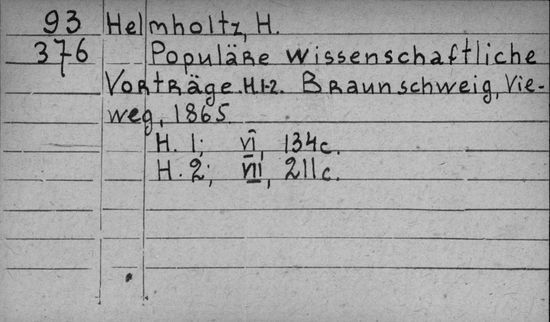 93 Helmholtz, H.
376 Populäre wissenschaftliche
Vorträge. H.1-2. Braunschweig, Vie-
weg, 1865.
H. 1; VI, 134c.
H. 2; VII, 211c.